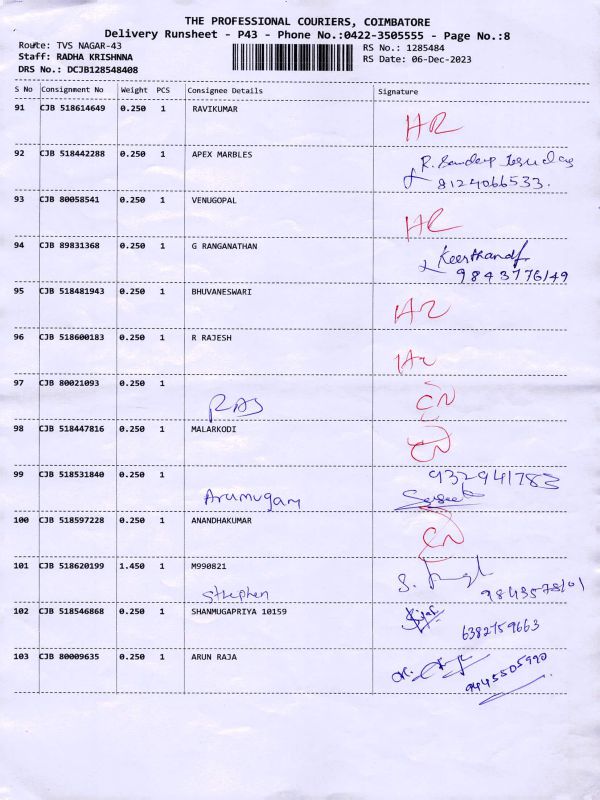 THE PROFESSIONAL COURIERS, COIMBATORE
Delivery Runsheet - P43 - Phone No.:0422-3505555 - Page No.:8
Route: TVS NAGAR-43 RS No.: 1285484
Staff: RADHA KRISHNNA RS Date: 06-Dec-2023
DRS No.: DCJB128548408
S No Consignment No Weight PCS Consignee Details Signature
91 CJB 518614649 0.250 1 RAVIKUMAR
HR
92 CJB 518442288 0.250 1 APEX MARBLES
R.
8124066533.
93 CJB 80058541 0.250 1 VENUGOPAL
HR
94 CJB 89831368 0.250 1 G RANGANATHAN
9843776149
95 CJB 518481943 0.250 1 BHUVANESWARI
HR
96 CJB 518600183 0.250 1 R RAJESH
HR
97 CJB 80021093 0.250 1
RAJ CN
98 CJB 518447816 0.250 1 MALARKODI
CN
99 CJB 518531840 0.250 1 932941783
Arumugam
100 CJB 518597228 0.250 1 ANANDHAKUMAR
CN
101 CJB 518620199 1.450 1 M990821
Strephen 9843578101
102 CJB 518546868 0.250 1 SHANMUGAPRIYA 10159
6382759663
103 CJB 80009635 0.250 1 ARUN RAJA
9445505990